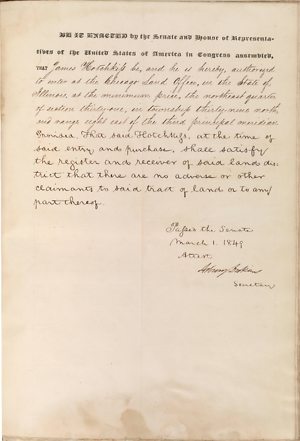 BE IT ENACTED by the Senate and House of Representa-
tives of the United States of America in Congress assembled,
THAT James Hotchkiss be, and he is hereby, authorized
to enter at the Chicago Land Office, in the State of
Illinois, at the minimum price, the northeast quarter
of section thirty-one, in township thirty-nine north,
and range eight east of the third principal meridian.
Provided, That said Hotchkiss, at the time of
said entry and purchase, shall satisfy
the register and receiver of said lands dis-
trict that there are no adverse or other
claimants to said tract of land or to any
part thereof.
Passed the Senate
March 1. 1849
Attest.
Secretary